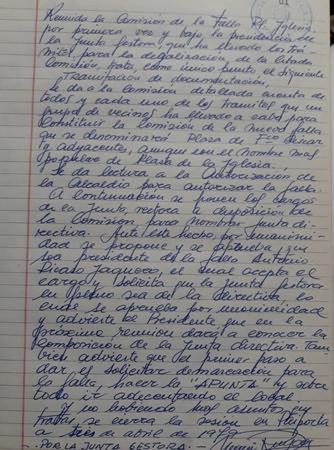 Reunida la Comisión de la Falla Pl. Iglesia
por primera vez y bajo la presidencia de
la Junta Gestora, que ha llevado los trá-
mites para la legalización de la citada
Comisión, trata como único punto el siguiente
Tramitación de documentación.
Se da a la Comisión detallada cuenta de
todos y cada uno de los tramites que un
grupo de vecinos ha llevado a cabo para
constituir la Comisión de la nueva falla
que se denominará Plaza de
y adyacentes, aunque con el nombre mas
popular de Plaza de la Iglesia.
Se da lectura a la Autorización de
la Alcaldía para autorizar la falla.
A continuación se ponen los cargos
de la Junta Gestora a disposición de
la Comisión para nombrar Junta di-
rectiva. Ante este hecho por unanimi-
dad se propone y se aprueba, que
sea presidente de la falla Antonio
el cual acepta el
cargo y solicita que la Junta Gestora
en pleno sea de la directiva, lo
cual se aprueba por unanimidad
y advierte el Presidente que en la
próxima reunión dará a conocer la
composición de la Junta directiva. Tam-
bién advierte que el primer paso a
dar el solicitar demarcación para
la falla, hacer la "APUNTA" y sobre
todo ir adecentando el local.
Y no habiendo mas asuntos que
tratar se cierra la sesión en
a tres de abril de 1979
POR LA JUNTA GESTORA.